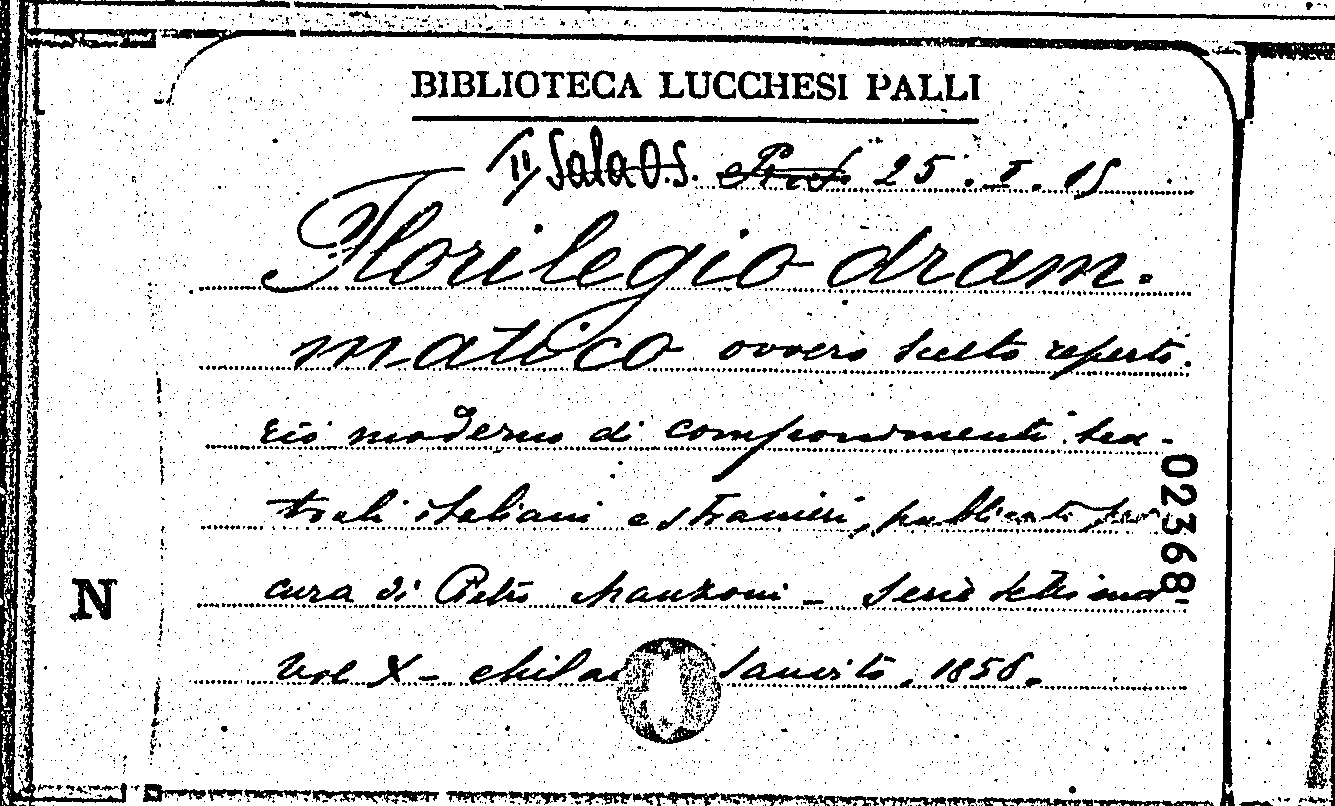 BIBLIOTECA LUCCHESI PALLI
II Sala O.S. 25. I. 15
Florilegio dram-
matico ovvero scelto reperto-
rio moderno di componimenti tea-
trali italiani e stranieri, pubblicato per
cura di Pietro Manzoni - Serie settima
Vol X - Milano Sanvito, 1858.
02368
N